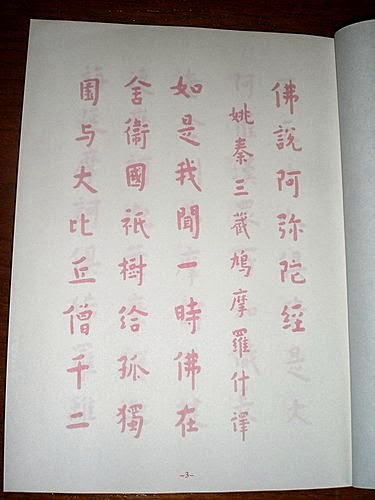 佛說阿弥陀經
姚秦三藏鳩摩羅什譯
如是我聞一時佛在
舍衞國祇樹給孤獨
園与大比丘僧千二
-3-